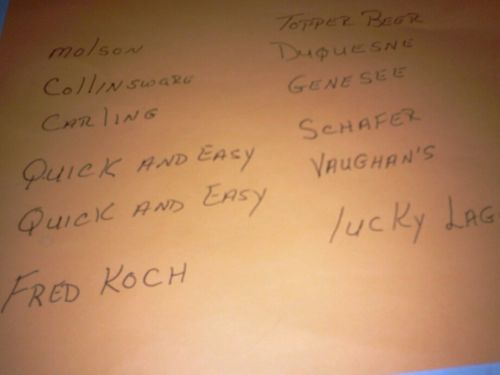 molson
Collinsware
Carling
Quick and Easy
Quick and Easy
Fred Koch
Topper Beer
Duquesne
Genesee
Schafer
Vaughan's
lucky Lag